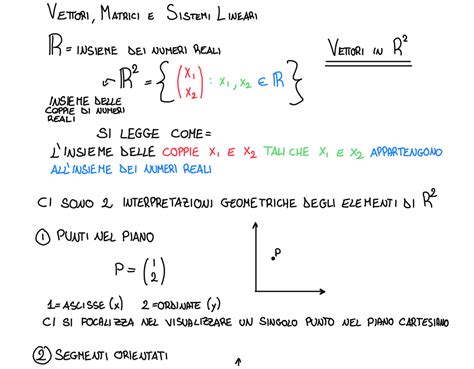 VETTORI, MATRICI E SISTEMI LINEARI
ℝ = INSIEME DEI NUMERI REALI
VETTORI IN ℝ²
ℝ² = { (x₁ x₂) : x₁, x₂ ∈ ℝ }
INSIEME DELLE
COPPIE DI NUMERI
REALI
SI LEGGE COME =
L'INSIEME DELLE COPPIE x₁ E x₂ TALI CHE x₁ E x₂ APPARTENGONO
ALL'INSIEME DEI NUMERI REALI
CI SONO 2 INTERPRETAZIONI GEOMETRICHE DEGLI ELEMENTI DI ℝ²
① PUNTI NEL PIANO
P = (1 2)
P
1 = ASCISSE (x) 2 = ORDINATE (y)
CI SI FOCALIZZA NEL VISUALIZZARE UN SINGOLO PUNTO NEL PIANO CARTESIANO
② SEGMENTI ORIENTATI